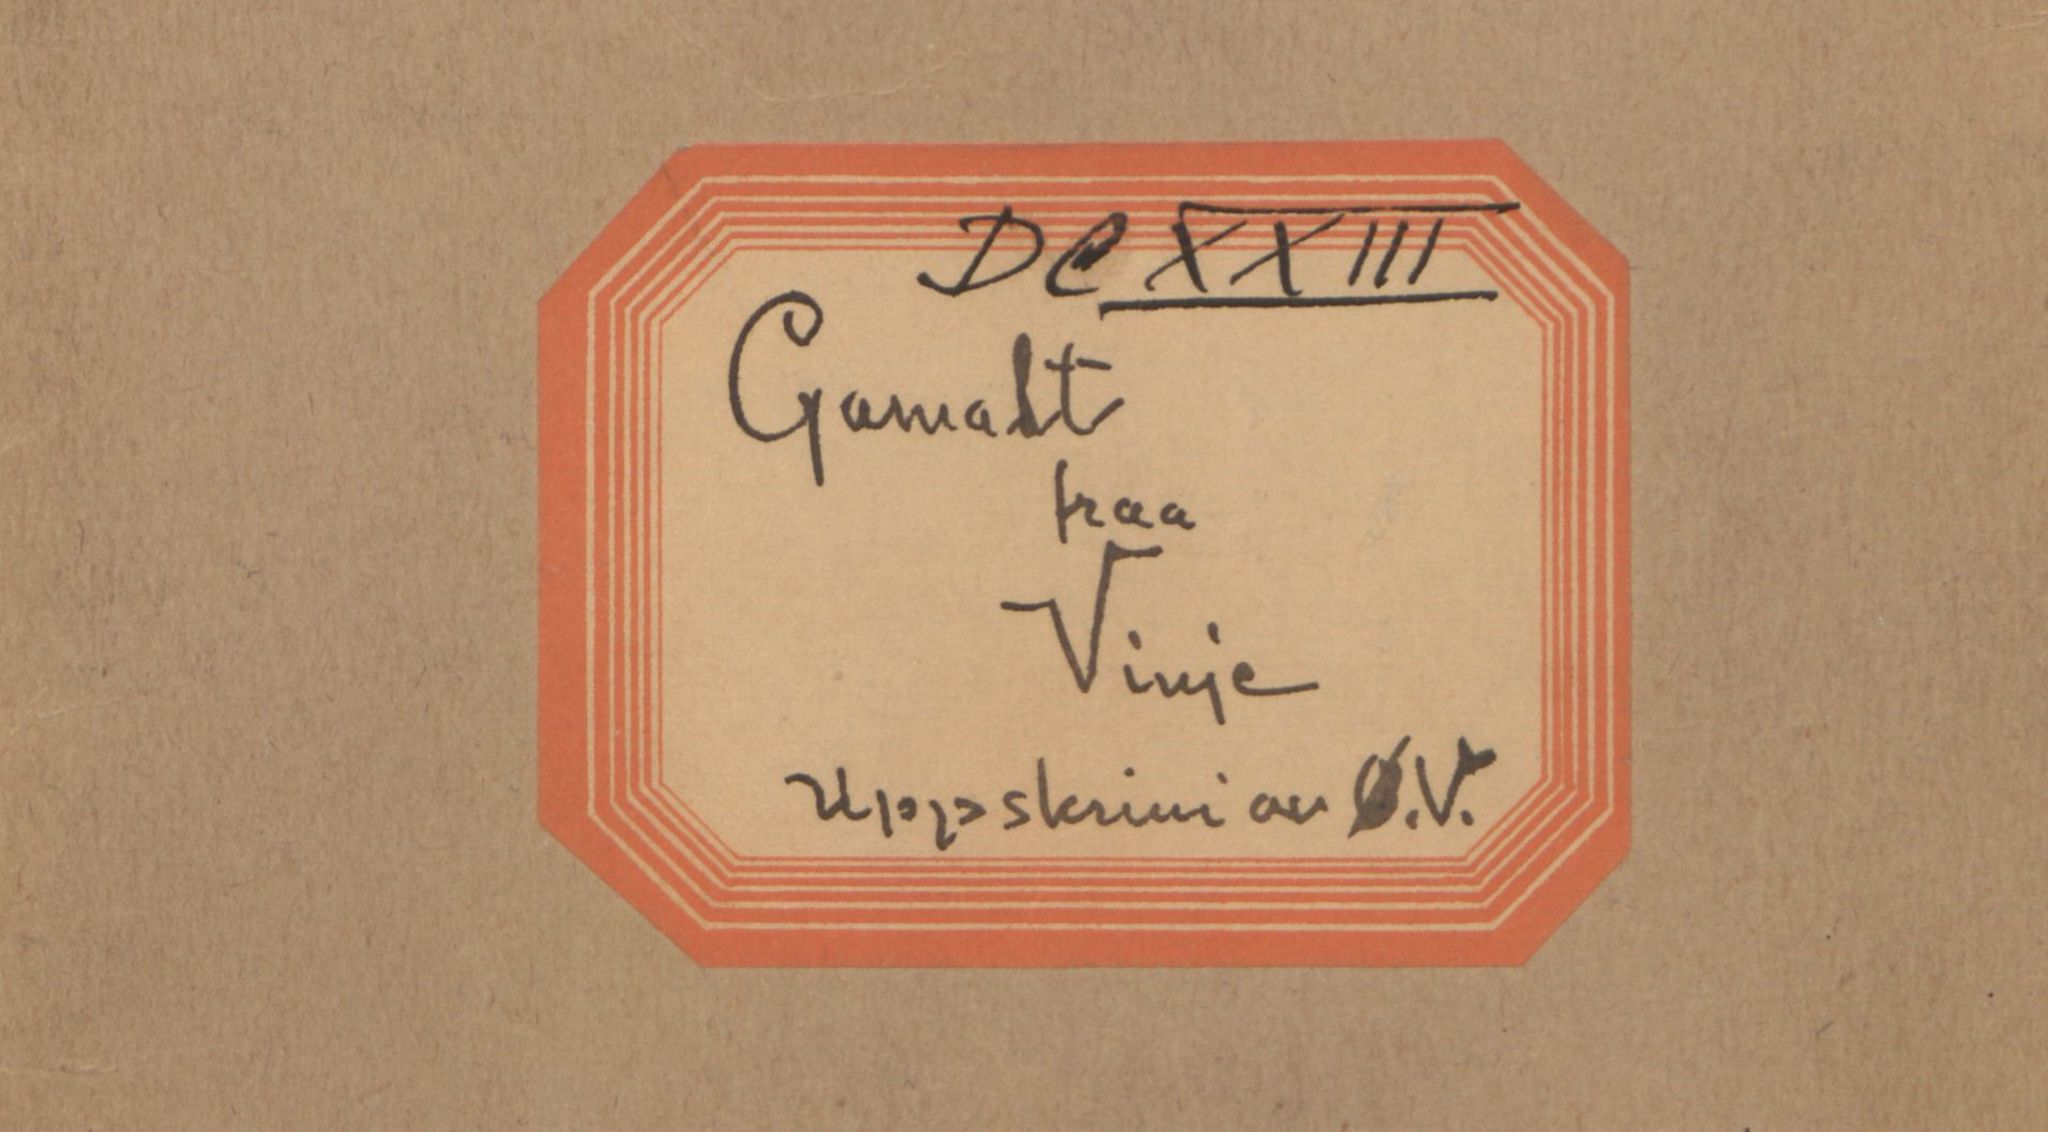 DCXXIII
Gamalt
fraa
Vinje
Uppskrivi av Ø.V.